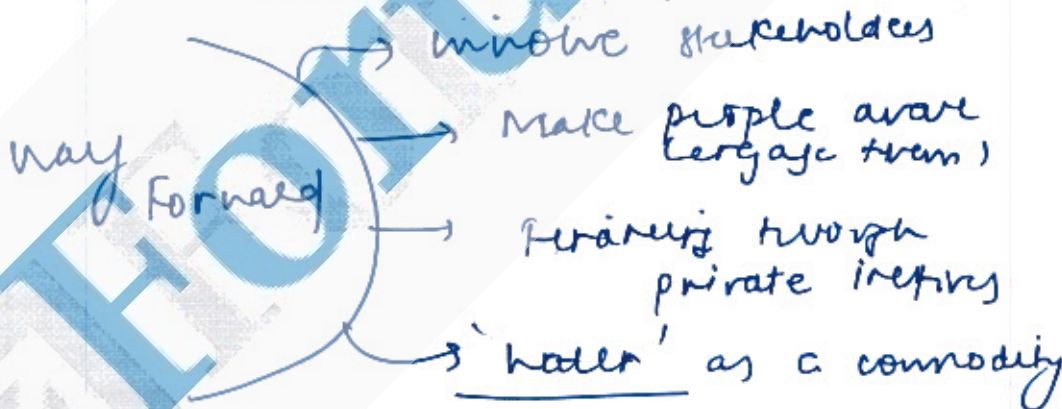 way Forward
involve stakeholders
Make people aware
(engage them)
Financing through
private
'water' as a commodity